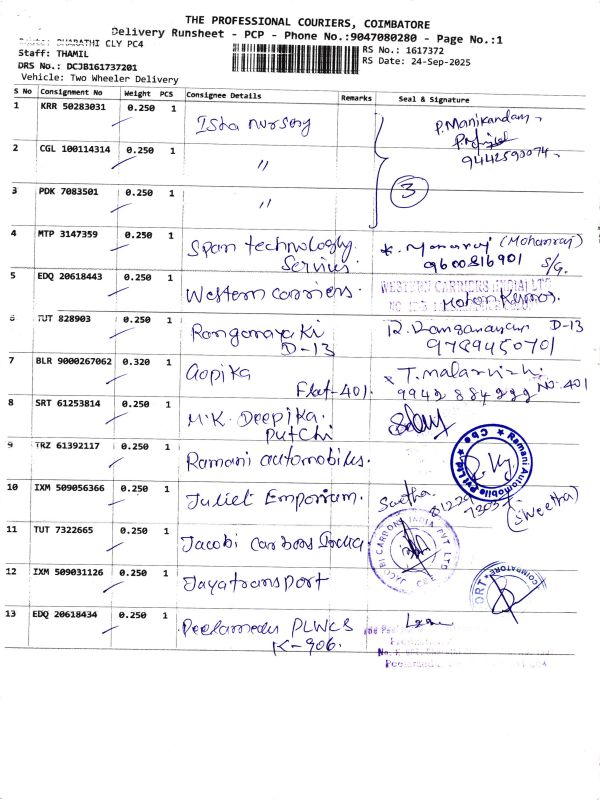 THE PROFESSIONAL COURIERS, COIMBATORE
Delivery Runsheet - PCP - Phone No.:9047080280 - Page No.:1
BHARATHI CLY PC4
Staff: THAMIL
RS No.: 1617372
DRS No.: DCJB161737201
RS Date: 24-Sep-2025
Vehicle: Two Wheeler Delivery
S No Consignment No Weight PCS Consignee Details Remarks Seal & Signature
1 KRR 50283031 0.250 1 Isha nursory P. Manikandan
2 CGL 100114314 0.250 1 〃 9442590074
3 PDK 7083501 0.250 1 〃 3
4 MTP 3147359 0.250 1 Span technology (Mohanraj)
Servius. 9600816901 S/G.
5 EDQ 20618443 0.250 1 Western carriers. WESTERN CARRIERS (INDIA) LTD
6 TUT 828903 0.250 1 Ranganayaki D-13
D-13 9789450701
7 BLR 9000267062 0.320 1 Gopika T. Malarvizhi
Flat-401. 9942884222 No. 401
8 SRT 61253814 0.250 1 M.K. Deepika.
Putchi
9 TRZ 61392117 0.250 1 Ramani automobiles. Ramani Automobile Pvt Ltd ★ Cbe ★
10 IXM 509056366 0.250 1 Juliet Emporium. Swetha 81229
7303 (Swetha)
11 TUT 7322665 0.250 1 Jacobi carbons India JACOBI CARBONS INDIA PVT LTD CBE
12 IXM 509031126 0.250 1 Jayatransport COIMBATORE
13 EDQ 20618434 0.250 1 Peelamedu PLWCS
K-906.